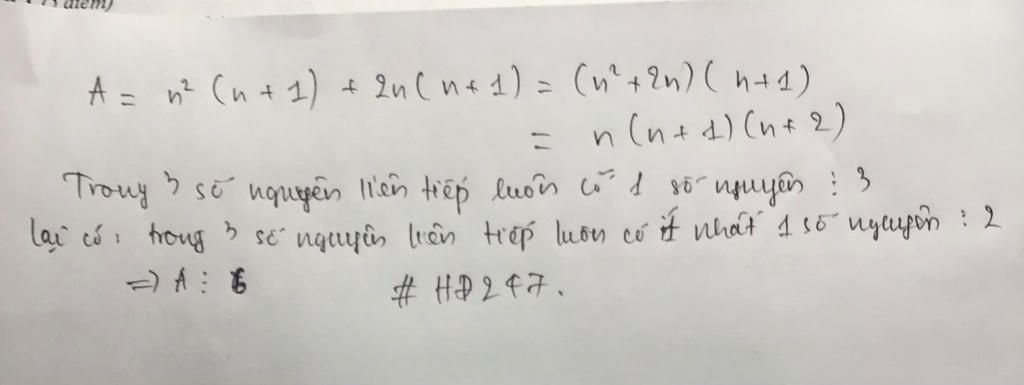 điểm)
A = n² (n + 1) + 2n ( n + 1) = (n² + 2n) ( n+1)
= n (n + 1) (n + 2)
Trong 3 số nguyên liên tiếp luôn có 1 số nguyên ⋮ 3
lại có: trong 3 số nguyên liên tiếp luôn có ít nhất 1 số nguyên ⋮ 2
=> A ⋮ 6 # HD247.